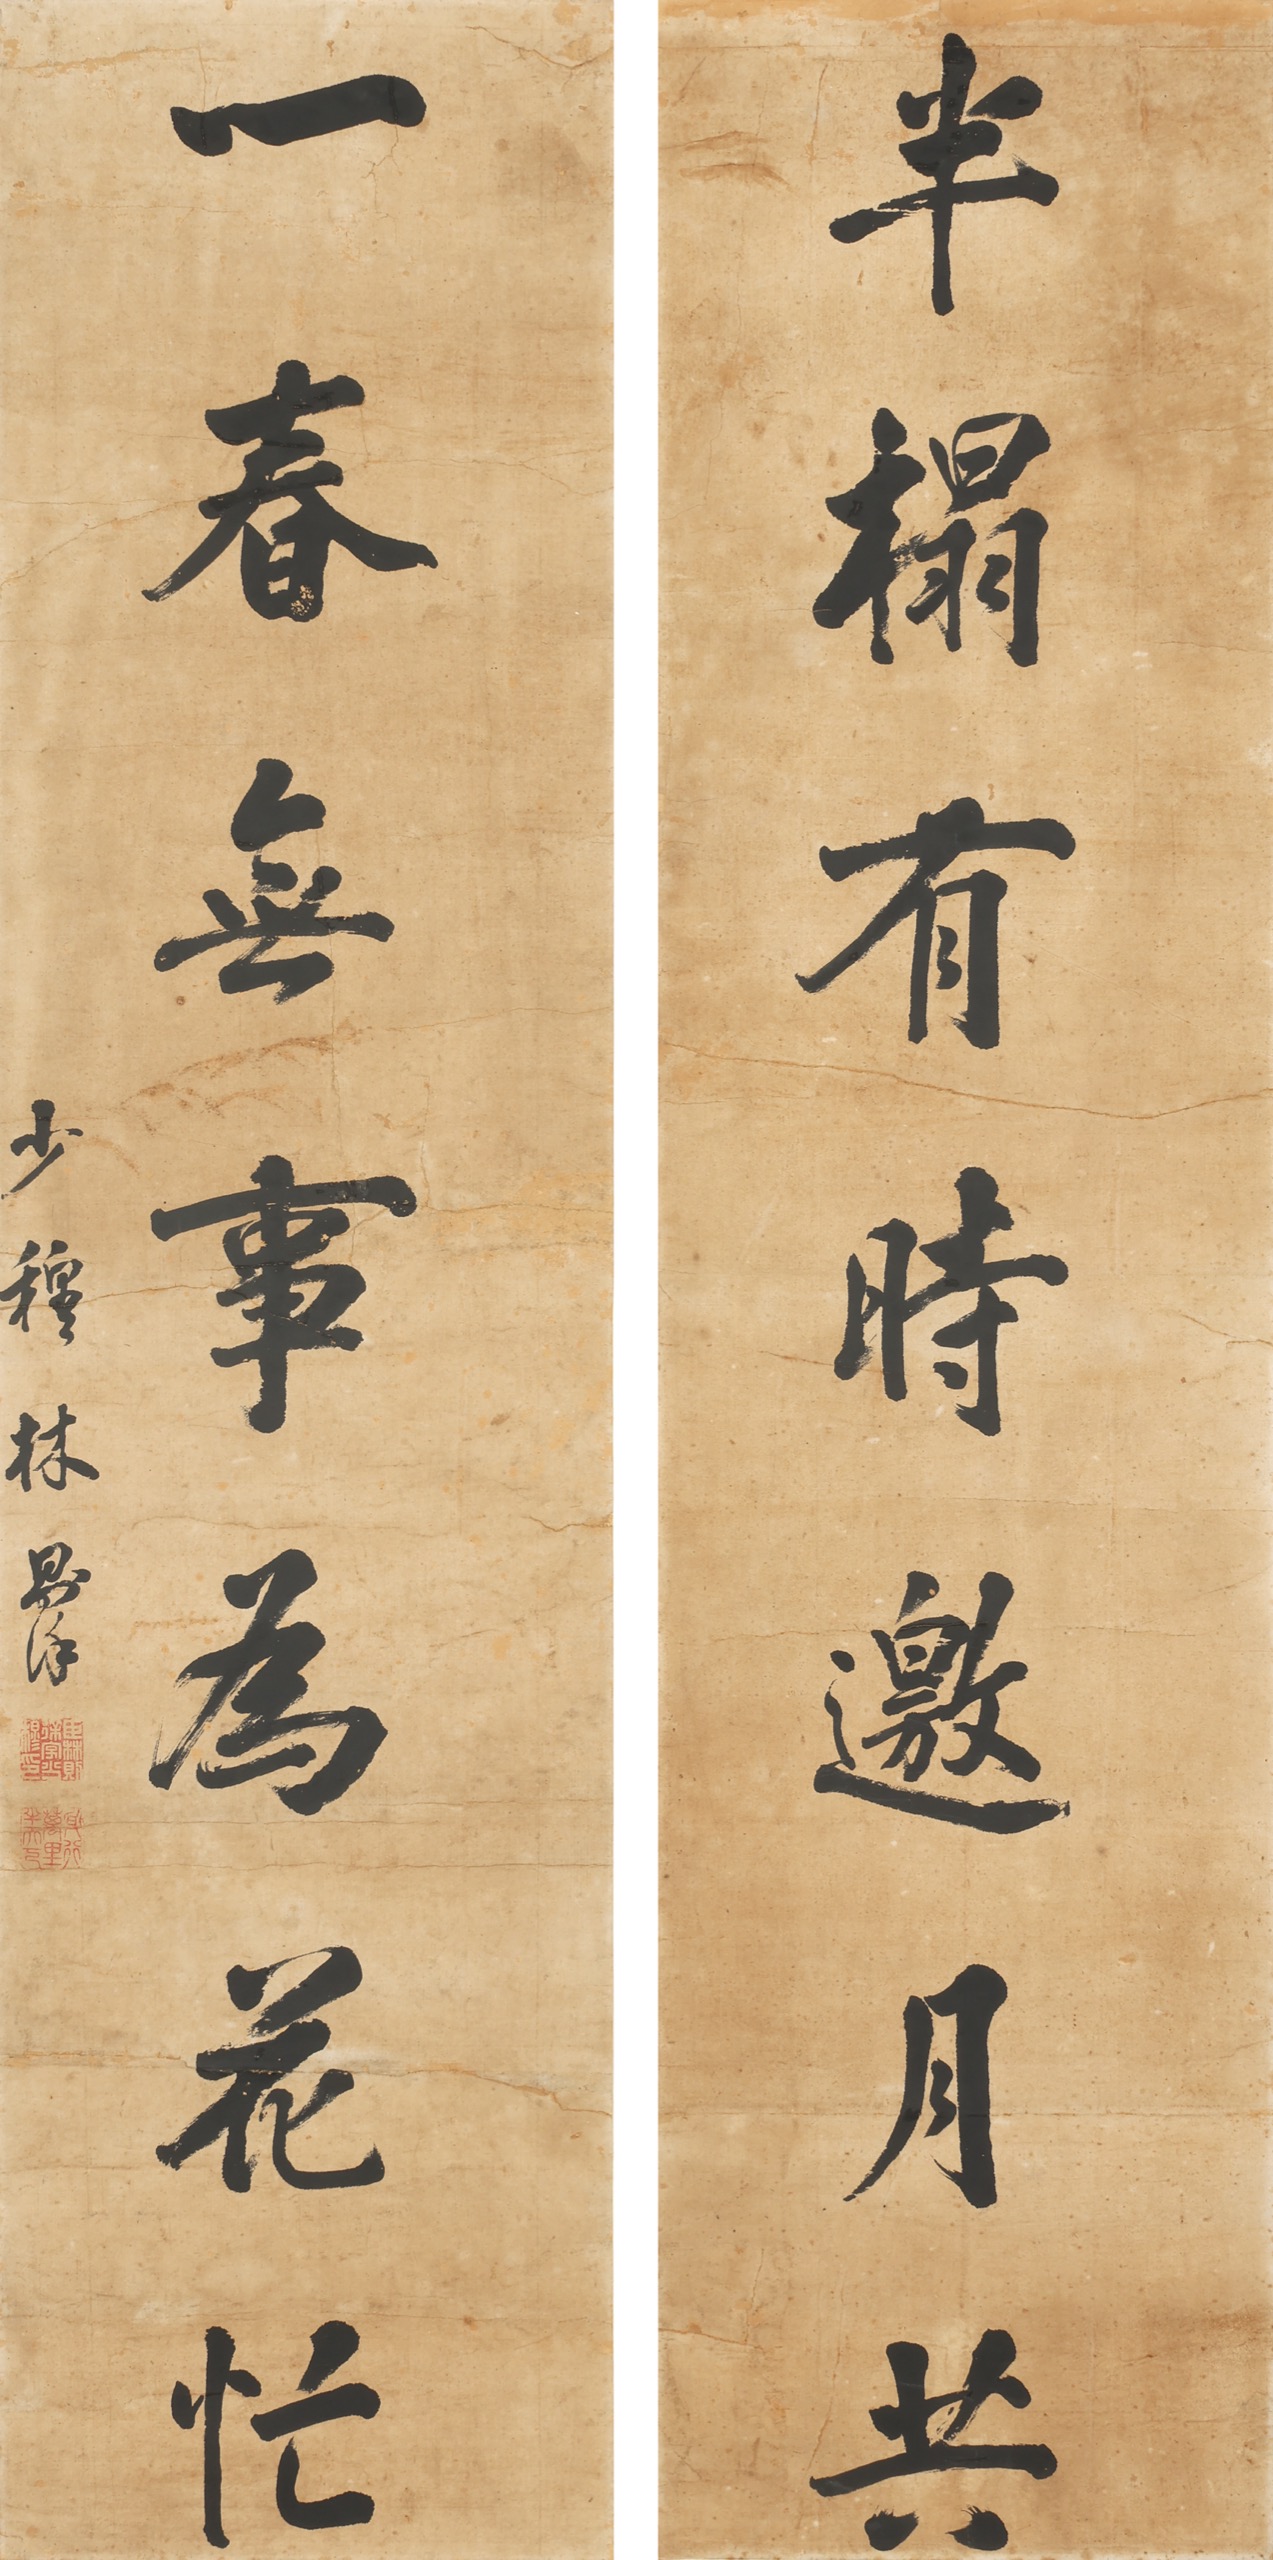 半榻有時邀月共
一春無事為花忙
少穆林則徐